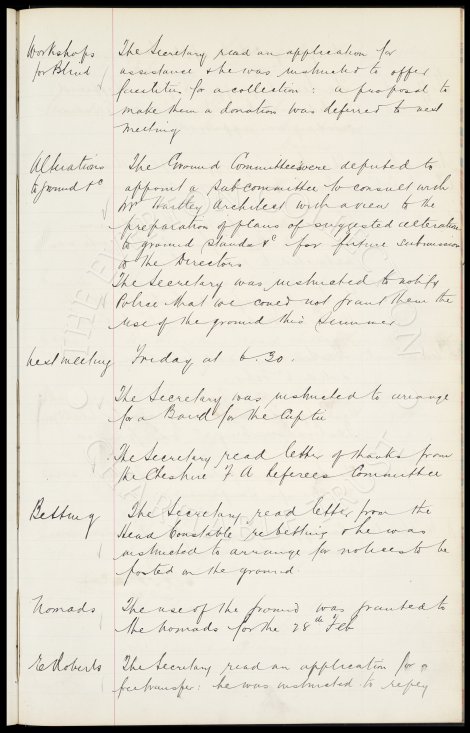 Workshops The Secretary read an application for
for Blind assistance & he was instructed to offer
facilities for a collection: a proposal to
make them a donation was deferred to next
meeting
Alterations The Ground Committee were deputed to
to ground &c appoint a sub committee to consult with
Mr Hartley Architect with a view to the
preparation of plans of suggested alterations
to ground stands &c for future submission
to the Directors
The Secretary was instructed to notify
Police that we could not grant them the
use of the ground this summer
next meeting Friday at 6.30.
The Secretary was instructed to arrange
for a Band for the Cuptie
The Secretary read letter of thanks from
the Cheshire F A Referees Committee
Betting The Secretary read letter from the
Head Constable re betting & he was
instructed to arrange for notices to be
posted on the ground.
Nomads The use of the ground was granted to
the Nomads for the 28th Feb
E Roberts The Secretary read an application for a
free transfer: he was instructed to reply